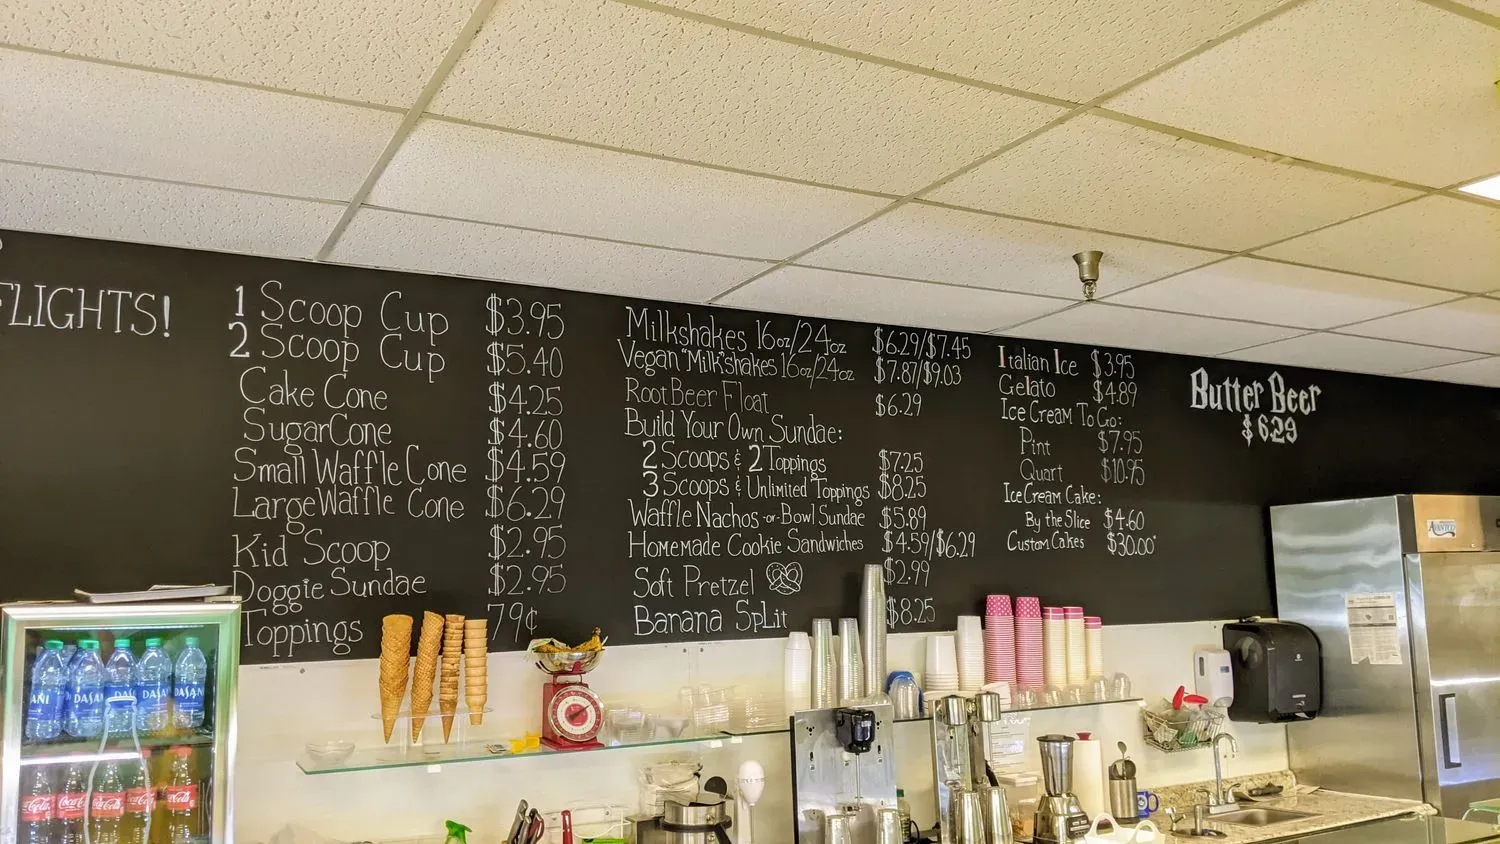 FLIGHTS!
1 Scoop Cup $3.95
2 Scoop Cup $5.40
Cake Cone $4.25
Sugar Cone $4.60
Small Waffle Cone $4.59
Large Waffle Cone $6.29
Kid Scoop $2.95
Doggie Sundae $2.95
Toppings 79¢
Milkshakes 16oz/24oz $6.29/$7.45
Vegan "Milk"shakes 16oz/24oz $7.87/$9.03
Root Beer Float $6.29
Build Your Own Sundae:
2 Scoops & 2 Toppings $7.25
3 Scoops & Unlimited Toppings $8.25
Waffle Nachos -or- Bowl Sundae $5.89
Homemade Cookie Sandwiches $4.59/$6.29
Soft Pretzel $2.99
Banana Split $8.25
Italian Ice $3.95
Gelato $4.89
Ice Cream To Go:
Pint $7.95
Quart $10.95
Ice Cream Cake:
By the Slice $4.60
Custom Cakes $30.00+
Butter Beer
$6.29
DASANI
DASANI
DASANI
DASANI
Coca-Cola
Coca-Cola
Coca-Cola
Coca-Cola
Coca-Cola
AVANTCO